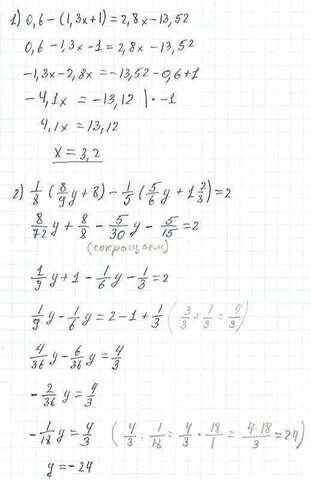 1) 0,6-(1,3x+1)=2,8x-13,52
0,6-1,3x-1=2,8x-13,52
-1,3x-2,8x=-13,52-0,6+1
-4,1x=-13,12 |·-1
4,1x=13,12
x=3,2
2) 1/8(8/9y+8)-1/5(5/6y+1 2/3)=2
8/72y+8/8-5/30y-5/15=2
(сокращаем)
1/9y+1-1/6y-1/3=2
1/9y-1/6y=2-1+1/3 (3/3+1/3=4/3)
4/36y-6/36y=4/3
-2/36y=4/3
-1/18y=4/3 (4/3:1/18=4/3·18/1=4·18/3=24)
y=-24